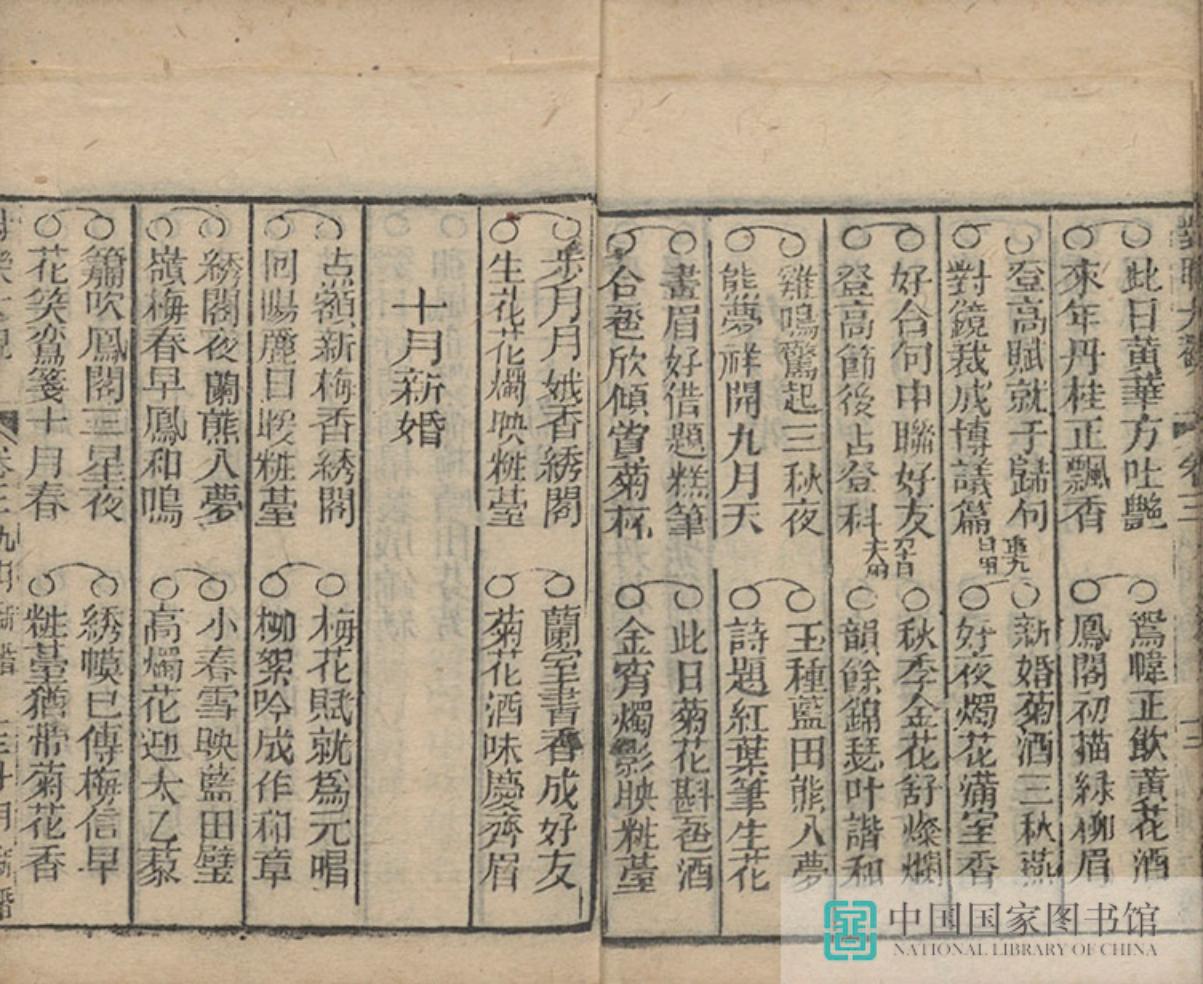 此日黃華方吐艷
來年丹桂正飄香
登高賦就于歸句
對鏡裁成博議篇
重九
日明
好合句中聯好友
登高節後占登科
雞鳴驚起三秋夜
熊夢祥開九月天
畫眉好借題糕筆
合卺欣傾賞菊杯
鴛幃正飲黃花酒
鳳閣初描綠柳眉
新婚菊酒三秋燕
好夜燭花滿室香
秋季金花舒燦爛
韻餘錦瑟叶諧和
玉種藍田熊入夢
詩題紅葉筆生花
此日菊花斟卺酒
金宵燭影映粧臺
步月月娥香綉閣
生花花燭映粧臺
蘭室書香成好友
菊花酒味慶齊眉
十月新婚
点額新梅香綉閣
回陽麗日暖粧臺
綉閣夜蘭熊入夢
嶺梅春早鳳和鳴
簫吹鳳閣三星夜
花笑鸞箋十月春
梅花賦就為元唱
柳絮吟成作和章
小春雪映藍田璧
高燭花迎太乙藜
綉幙已傳梅信早
粧臺猶帶菊花香
中国国家图书馆
NATIONAL LIBRARY OF CHINA